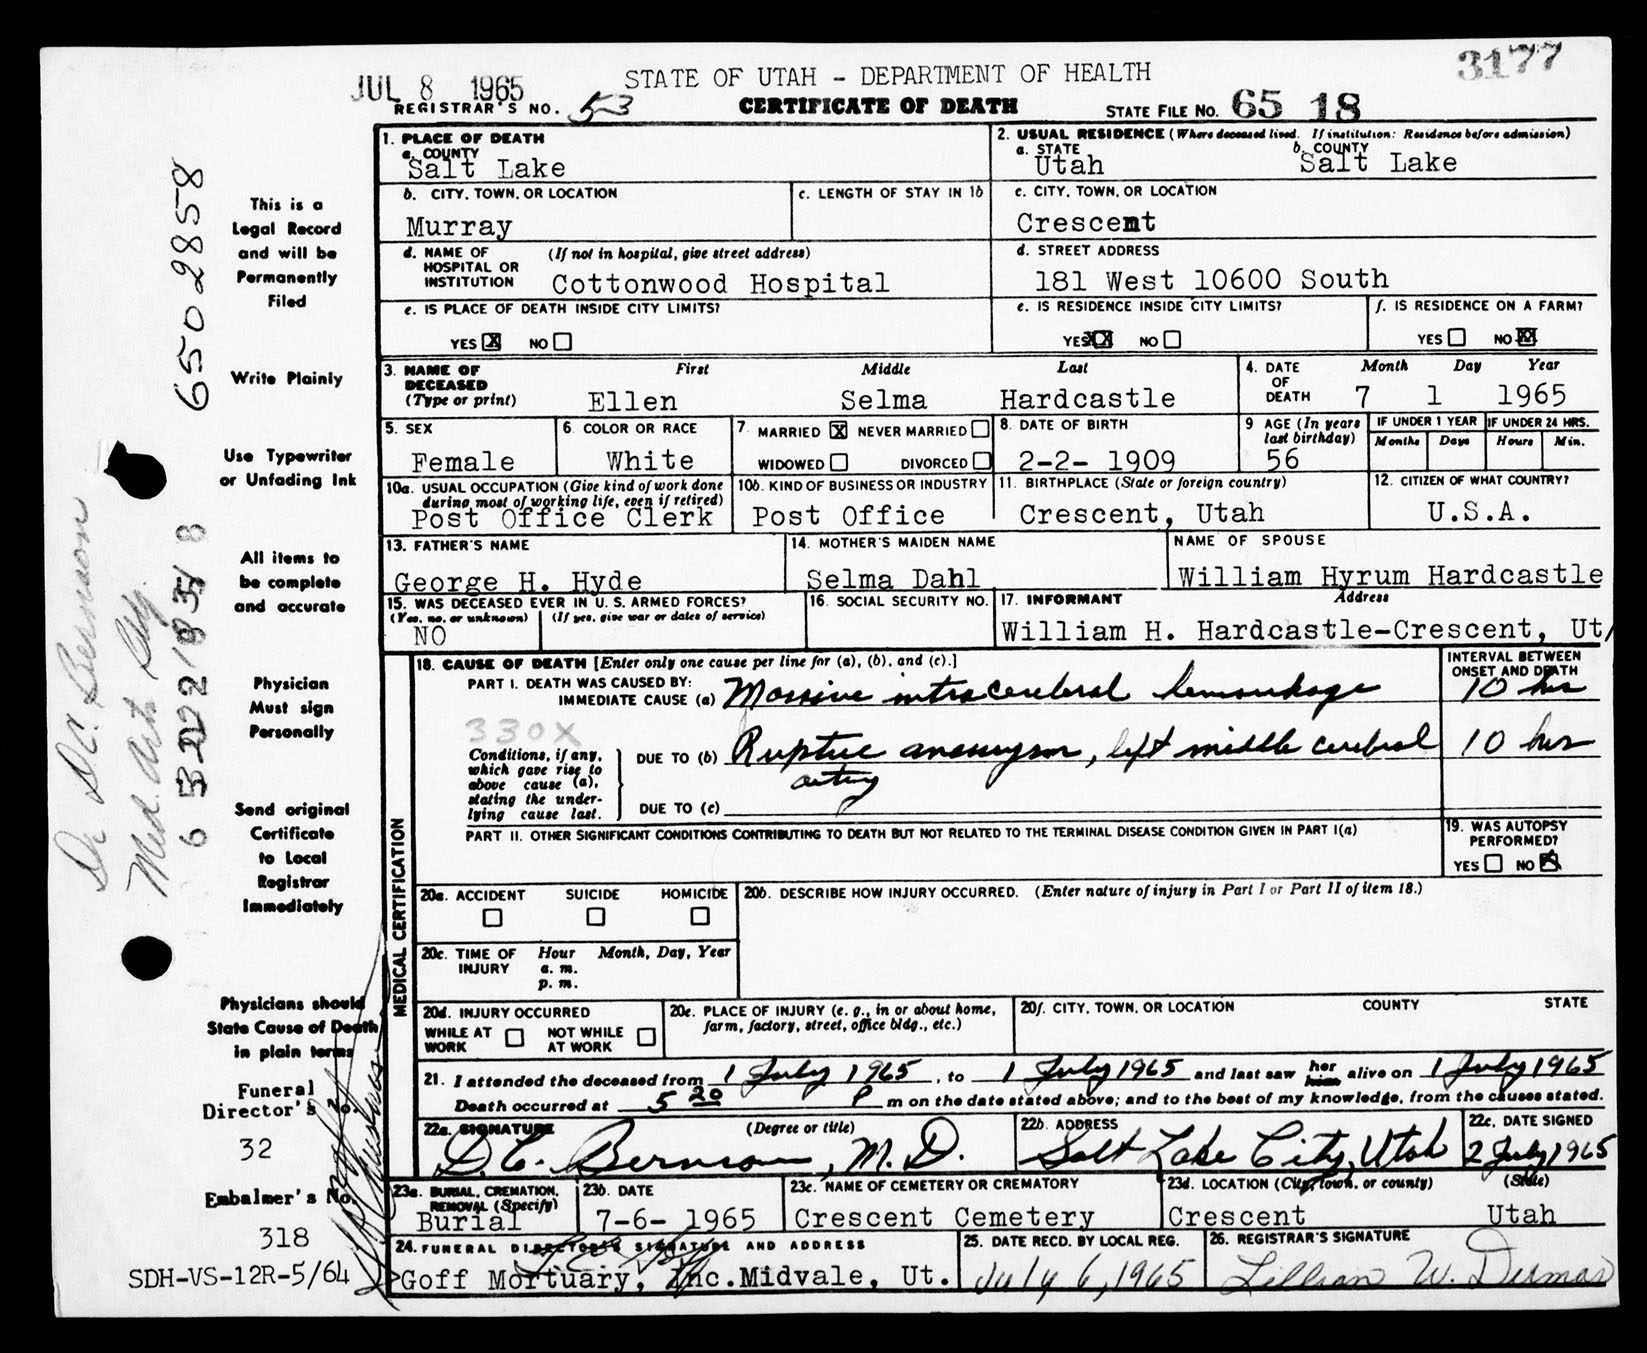 JUL 8 1965
STATE OF UTAH - DEPARTMENT OF HEALTH
3177
REGISTRAR'S NO. 53
CERTIFICATE OF DEATH
STATE FILE NO. 65 18
1. PLACE OF DEATH
a. COUNTY
Salt Lake
2. USUAL RESIDENCE (Where deceased lived. If institution: Residence before admission)
a. STATE b. COUNTY
Utah Salt Lake
b. CITY, TOWN, OR LOCATION
Murray
c. LENGTH OF STAY IN 1b
c. CITY, TOWN, OR LOCATION
Crescent
d. NAME OF HOSPITAL OR INSTITUTION (If not in hospital, give street address)
Cottonwood Hospital
d. STREET ADDRESS
181 West 10600 South
e. IS PLACE OF DEATH INSIDE CITY LIMITS?
YES X NO
e. IS RESIDENCE INSIDE CITY LIMITS?
YES X NO
f. IS RESIDENCE ON A FARM?
YES NO X
3. NAME OF DECEASED (Type or print)
First Middle Last
Ellen Selma Hardcastle
4. DATE OF DEATH
Month Day Year
7 1 1965
5. SEX
Female
6. COLOR OR RACE
White
7. MARRIED X NEVER MARRIED
WIDOWED DIVORCED
8. DATE OF BIRTH
2-2- 1909
9 AGE (In years last birthday)
56
IF UNDER 1 YEAR
Months Days
IF UNDER 24 HRS.
Hours Min.
10a. USUAL OCCUPATION (Give kind of work done during most of working life, even if retired)
Post Office Clerk
10b. KIND OF BUSINESS OR INDUSTRY
Post Office
11. BIRTHPLACE (State or foreign country)
Crescent, Utah
12. CITIZEN OF WHAT COUNTRY?
U.S.A.
13. FATHER'S NAME
George H. Hyde
14. MOTHER'S MAIDEN NAME
Selma Dahl
NAME OF SPOUSE
William Hyrum Hardcastle
15. WAS DECEASED EVER IN U.S. ARMED FORCES?
(Yes, no, or unknown) (If yes, give war or dates of service)
NO
16. SOCIAL SECURITY NO.
17. INFORMANT Address
William H. Hardcastle-Crescent, Ut,
18. CAUSE OF DEATH [Enter only one cause per line for (a), (b), and (c).]
INTERVAL BETWEEN ONSET AND DEATH
PART I. DEATH WAS CAUSED BY:
IMMEDIATE CAUSE (a) Massive intracerebral hemorrhage 10 hrs
330X
Conditions, if any, which gave rise to above cause (a), stating the underlying cause last.
DUE TO (b) Rupture aneurysm, left middle cerebral 10 hrs
artery
DUE TO (c)
PART II. OTHER SIGNIFICANT CONDITIONS CONTRIBUTING TO DEATH BUT NOT RELATED TO THE TERMINAL DISEASE CONDITION GIVEN IN PART I(a)
19. WAS AUTOPSY PERFORMED?
YES NO X
MEDICAL CERTIFICATION
20a. ACCIDENT SUICIDE HOMICIDE
20b. DESCRIBE HOW INJURY OCCURRED. (Enter nature of injury in Part I or Part II of item 18.)
20c. TIME OF INJURY Hour Month, Day, Year
a. m.
p. m.
20d. INJURY OCCURRED
WHILE AT WORK NOT WHILE AT WORK
20e. PLACE OF INJURY (e. g., in or about home, farm, factory, street, office bldg., etc.)
20f. CITY, TOWN, OR LOCATION COUNTY STATE
21. I attended the deceased from 1 July 1965, to 1 July 1965 and last saw her him alive on 1 July 1965
Death occurred at 5 20 P m on the date stated above; and to the best of my knowledge, from the causes stated.
22a. SIGNATURE (Degree or title)
D. C. Bernson, M. D.
22b. ADDRESS
Salt Lake City, Utah
22c. DATE SIGNED
2 July 1965
23a. BURIAL, CREMATION, REMOVAL (Specify)
Burial
23b. DATE
7-6- 1965
23c. NAME OF CEMETERY OR CREMATORY
Crescent Cemetery
23d. LOCATION (City, town, or county) (State)
Crescent Utah
24. FUNERAL DIRECTOR'S SIGNATURE AND ADDRESS
Goff Mortuary, Inc. Midvale, Ut.
25. DATE RECD. BY LOCAL REG.
July 6, 1965
26. REGISTRAR'S SIGNATURE
Lillian W.
This is a
Legal Record
and will be
Permanently
Filed
Write Plainly
Use Typewriter
or Unfading Ink
All items to
be complete
and accurate
Physician
Must sign
Personally
Send original
Certificate
to Local
Registrar
Immediately
Physicians should
State Cause of Death
in plain terms
Funeral
Director's No.
32
Embalmer's No.
318
SDH-VS-12R-5/64
6502858
Dr D.C. Bernson
Med. Arts Bldg.